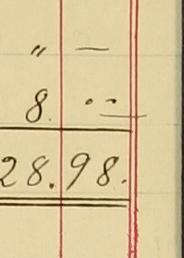 " —
8. ..
28.98.